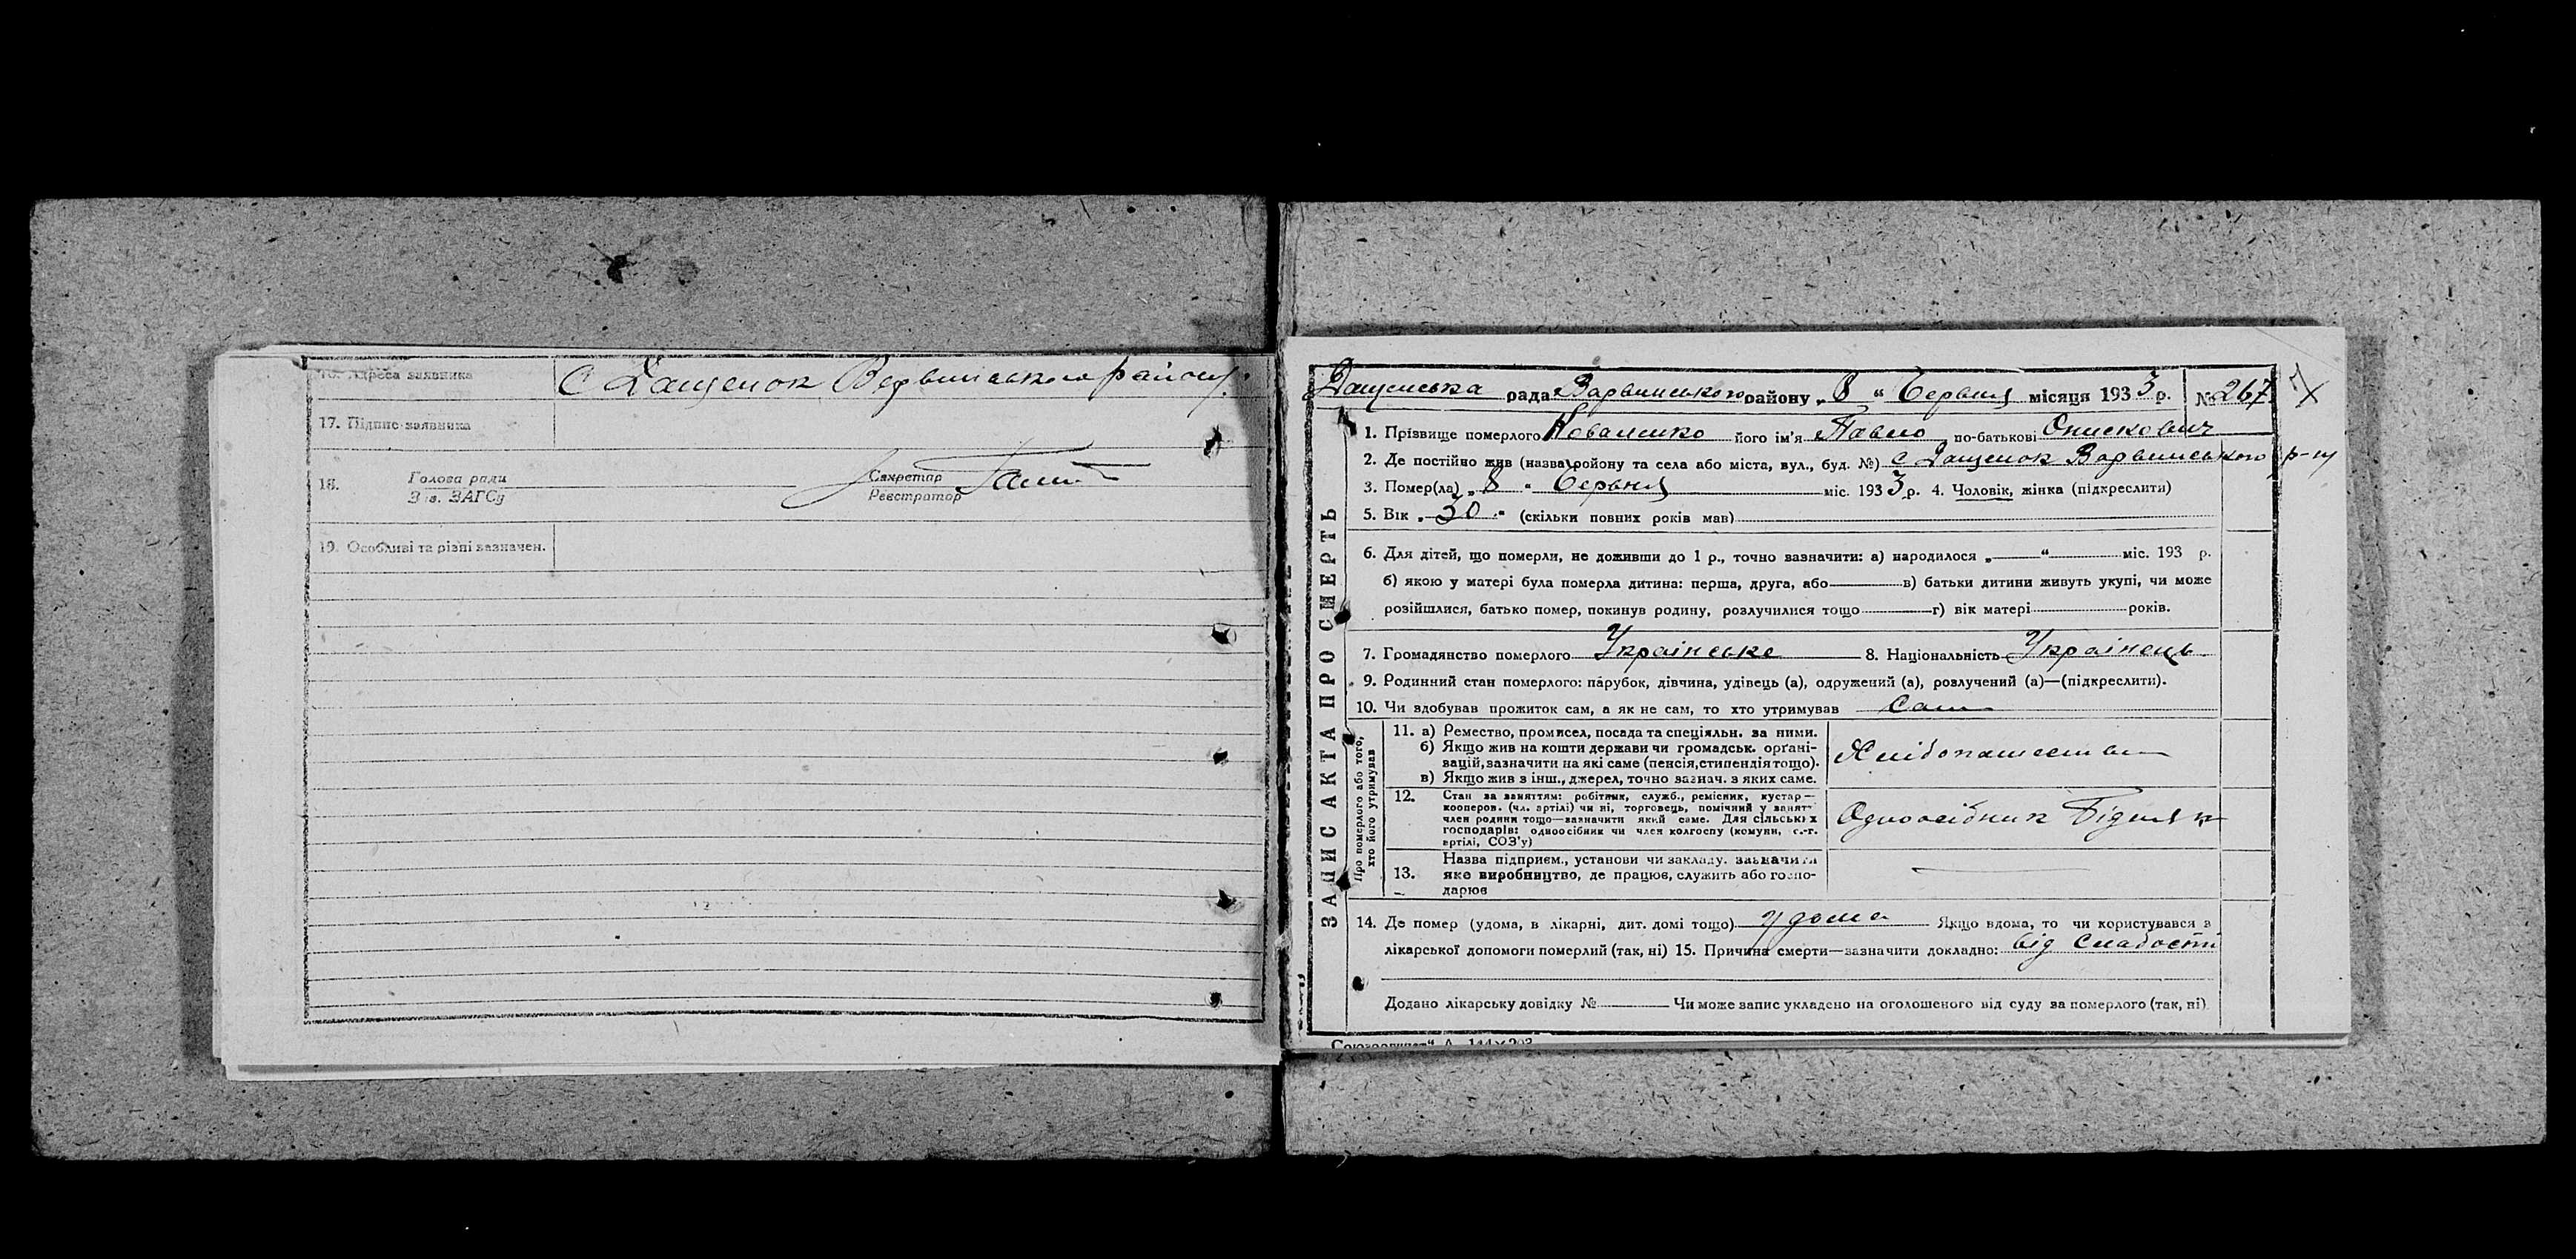 16. Адреса заявника С Дащенок Варвинського району.
17. Підпис заявника
18. Голова ради
Зав. ЗАГСу
Секретар
Реєстратор
19. Особливі та різні зазначен.
Дащенська рада Варвинського району „8“ Червня місяця 1933 р. № 267
ЗАПИС АКТА ПРО СМЕРТЬ
1. Прізвище померлого Коваленко його ім'я Павло по-батькові Онискович
2. Де постійно жив (назва ройону та села або міста, вул., буд. №) с Дащенок Варвинського р-ну
3. Помер(ла) „8“ Червня міс. 1933 р. 4. Чоловік, жінка (підкреслити)
5. Вік „30“ (скільки повних років мав)
6. Для дітей, що померли, не доживши до 1 р., точно зазначити: а) народилося „ “ міс. 193 р.
б) якою у матері була померла дитина: перша, друга, або в) батьки дитини живуть укупі, чи може
розійшлися, батько помер, покинув родину, розлучилися тощо г) вік матері років.
7. Громадянство померлого Українське 8. Національність Українець
9. Родинний стан померлого: парубок, дівчина, удівець (а), одружений (а), розлучений (а)—(підкреслити).
10. Чи здобував прожиток сам, а як не сам, то хто утримував Сам
Про померлого або того,
хто його утримував
11. а) Ремество, промисел, посада та спеціяльн. за ними.
б) Якщо жив на кошти держави чи громадськ. органі-
зацій, зазначити на які саме (пенсія, стипендія тощо).
в) Якщо жив з інш., джерел, точно зазнач. з яких саме.
12. Стан за заняттям: робітник, служб., ремісник, кустар—
кооперов. (чл. артілі) чи ні, торговець, помічний у занятт
член родини тощо—зазначити який саме. Для сільських
господарів: одноосібник чи член колгоспу (комуни, с.-г.
артілі, СОЗ'у)
Одноосібник Бідняк
13. Назва підприєм., установи чи закладу. зазначити
яке виробництво, де працює, служить або госпо-
дарює
14. Де помер (удома, в лікарні, дит. домі тощо) удома Якщо вдома, то чи користувався з
лікарської допомоги померлий (так, ні) 15. Причина смерти—зазначити докладно: від слабости
Додано лікарську довідку № Чи може запис укладено на оголошеного від суду за померлого (так, ні)